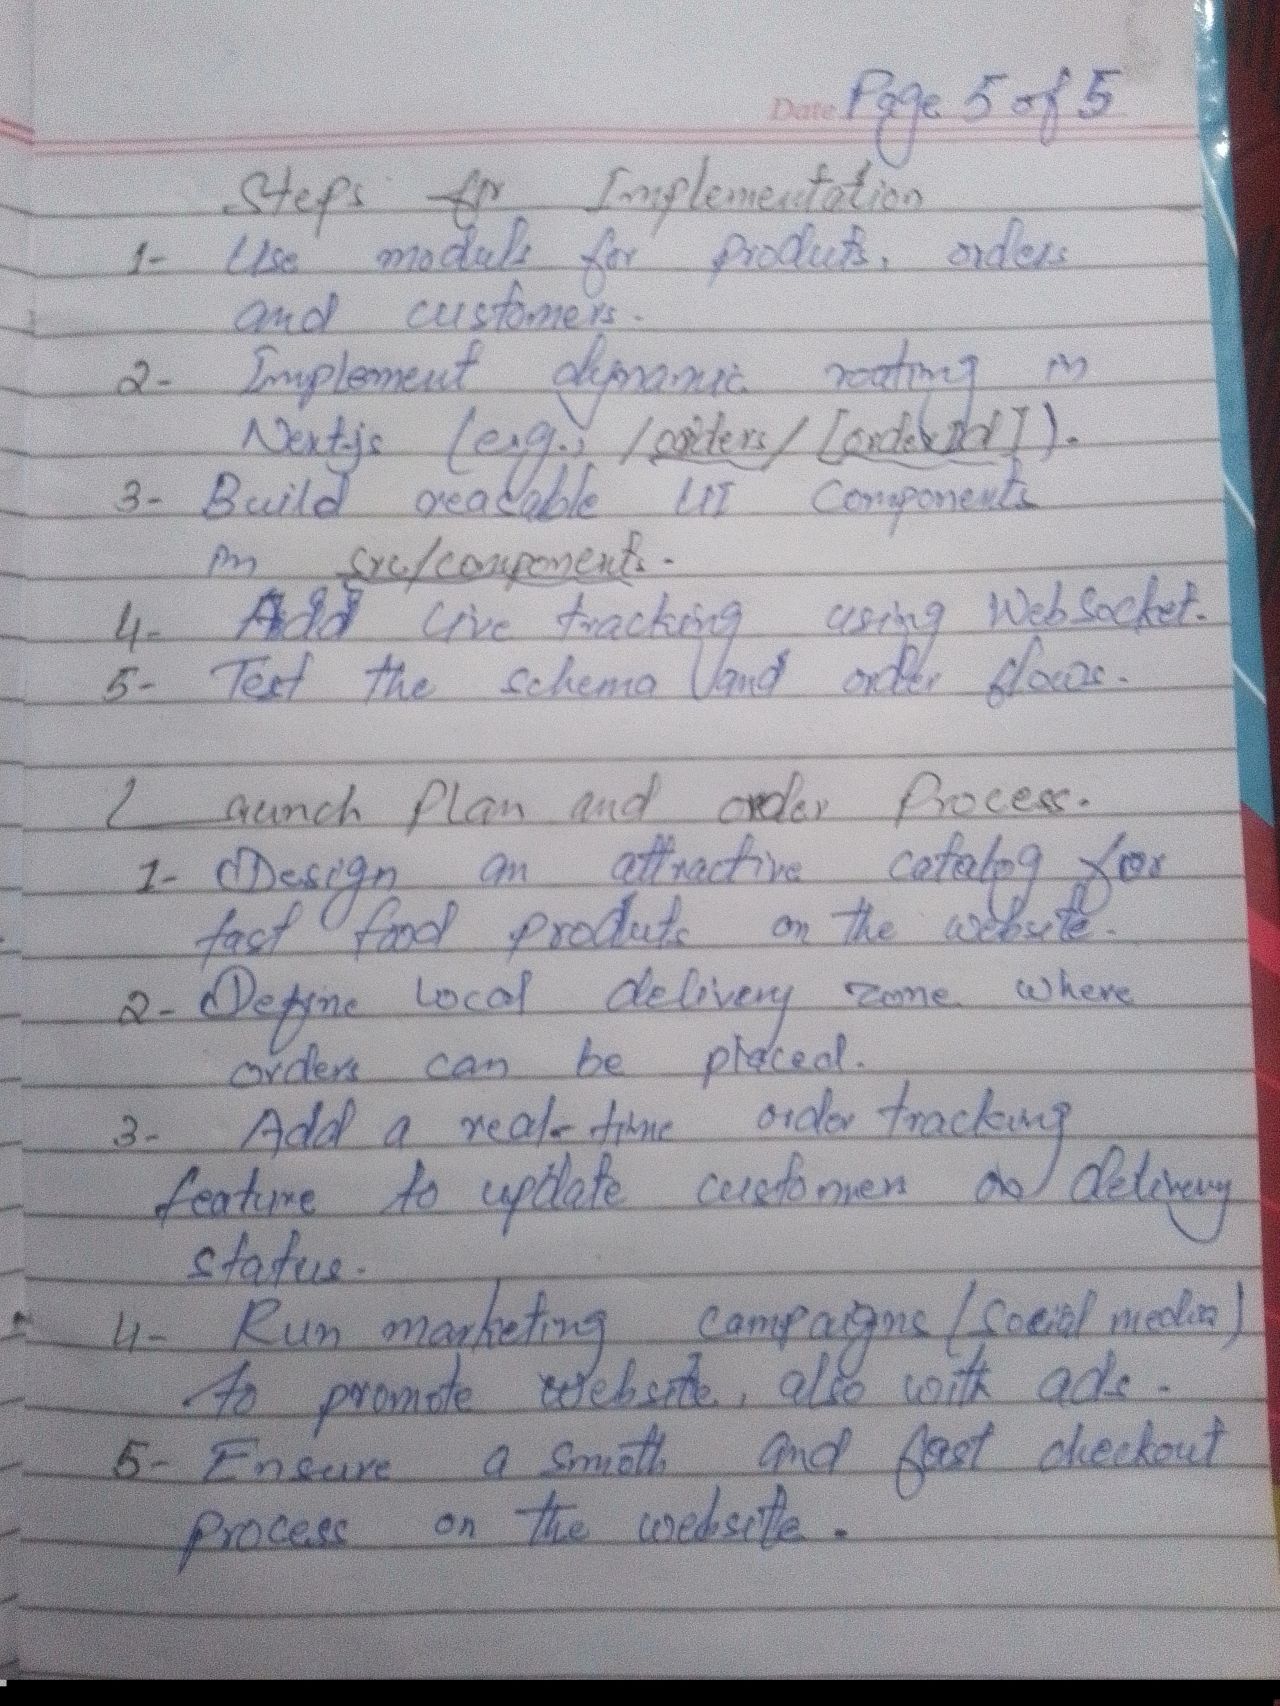 Date Page 5 of 5
Steps for Implementation
1- Use moduls for products, orders
and customers.
2- Implement dynamic roating in
Next.js (e.g., / /[orderId]).
3- Build UI Components
in src/components.
4- Add live tracking using WebSocket.
5- Test the schema and order flows.
Launch Plan and order Process.
1- Design an attractive catalog for
fast food products on the website.
2- Define Local delivery zone where
orders can be placed.
3- Add a real-time order tracking
feature to update customers on delivery
status.
4- Run marketing campaigns (Social media)
to promote website, also with ads.
5- Ensure a smoth and fast checkout
Process on the website.